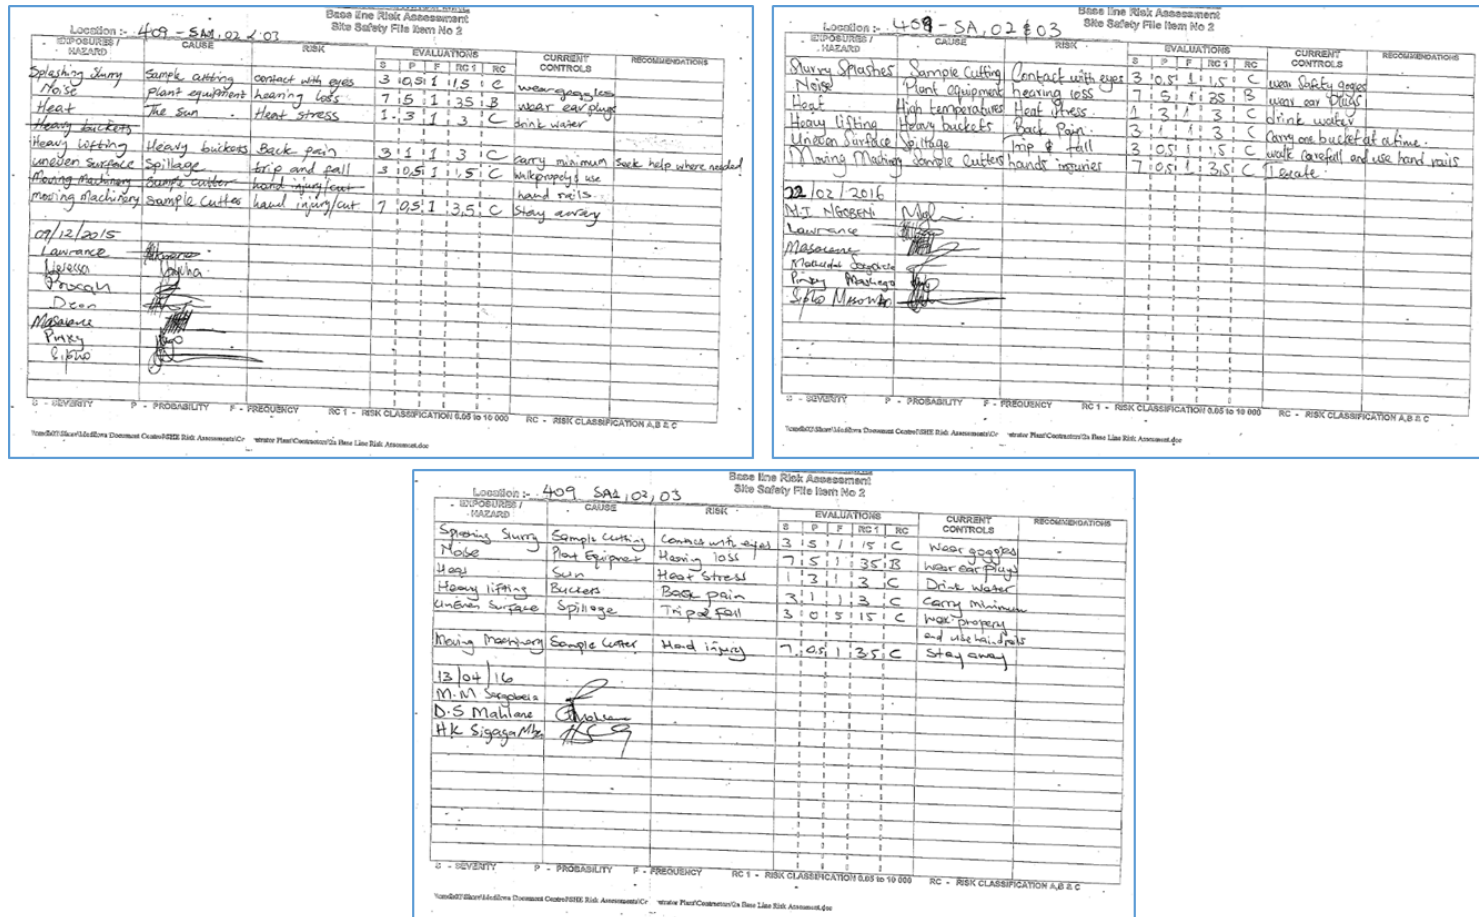 Base line Risk Assessment
Site Safety File Item No 2
Location :- 409 - SA1, 02 & 03
EXPOSURES / HAZARD CAUSE RISK EVALUATIONS CURRENT CONTROLS RECOMMENDATIONS
S P F RC 1 RC
Splashing Slurry Sample cutting contact with eyes 3 0,5 1 1,5 C wear goggles
Noise plant equipment hearing loss 7 5 1 35 B wear earplugs
Heat The sun Heat stress 1 3 1 3 C drink water
Heavy buckets
Heavy lifting Heavy buckets Back pain 3 1 1 3 C carry minimum seek help where needed
uneven surface Spillage trip and fall 3 0,5 1 1,5 C walk properly & use
Moving Machinery Sample cutter hand injury/cut hand rails.
moving Machinery Sample Cutter hand injury/cut 7 0,5 1 3,5 C Stay away
09/12/2015
Lawrance
Deon
Masaiane
Pinky
Sipho
S - SEVERITY P - PROBABILITY F - FREQUENCY RC 1 - RISK CLASSIFICATION 0.05 to 10 000 RC - RISK CLASSIFICATION A,B & C
Base line Risk Assessment
Site Safety File Item No 2
Location :- 409 - SA, 02 & 03
EXPOSURES / HAZARD CAUSE RISK EVALUATIONS CURRENT CONTROLS RECOMMENDATIONS
S P F RC 1 RC
Slurry Splashes Sample Cutting Contact with eyes 3 0,5 1 1,5 C wear Safety goges
Noise Plant equipment hearing loss 7 5 1 35 B wear ear plugs
Heat High temperatures Heat Stress. 1 3 1 3 C drink water
Heavy lifting Heavy buckets Back Pain. 3 1 1 3 C Carry one bucket at a time.
Uneven Surface Spillage Trip & fall 3 0,5 1 1,5 C walk carefull and use hand rails
Moving Maching Sample Cutters hands injuries 7 0,5 1 3,5 C
22/02/2016
M.I NGOBENI
Lawrance
Masaiane
Pinky Mashego
Sipho
S - SEVERITY P - PROBABILITY F - FREQUENCY RC 1 - RISK CLASSIFICATION 0.05 to 10 000 RC - RISK CLASSIFICATION A,B & C
Base line Risk Assessment
Site Safety File Item No 2
Location :- 409 SA1, 02, 03
EXPOSURES / HAZARD CAUSE RISK EVALUATIONS CURRENT CONTROLS RECOMMENDATIONS
S P F RC 1 RC
Splashing Slurry Sample Cutting Contact with eyes 3 5 1 15 C Wear goggles
Noise Plant Equipmet Hearing loss 7 5 1 35 B Wear ear plugs
Heat Sun Heat Stress 1 3 1 3 C Drink Water
Heavy lifting Buckets Back pain 3 1 1 3 C Carry minimum
UnEven Surface Spillage Trip & Fall 3 0 5 15 C walk propery
and use handrails
Moving Machinery Sample Cutter Hand injury 7 0,5 1 3,5 C Stay away
13/04/16
D.S Mahlane
HK Sigaga
S - SEVERITY P - PROBABILITY F - FREQUENCY RC 1 - RISK CLASSIFICATION 0.05 to 10 000 RC - RISK CLASSIFICATION A,B & C